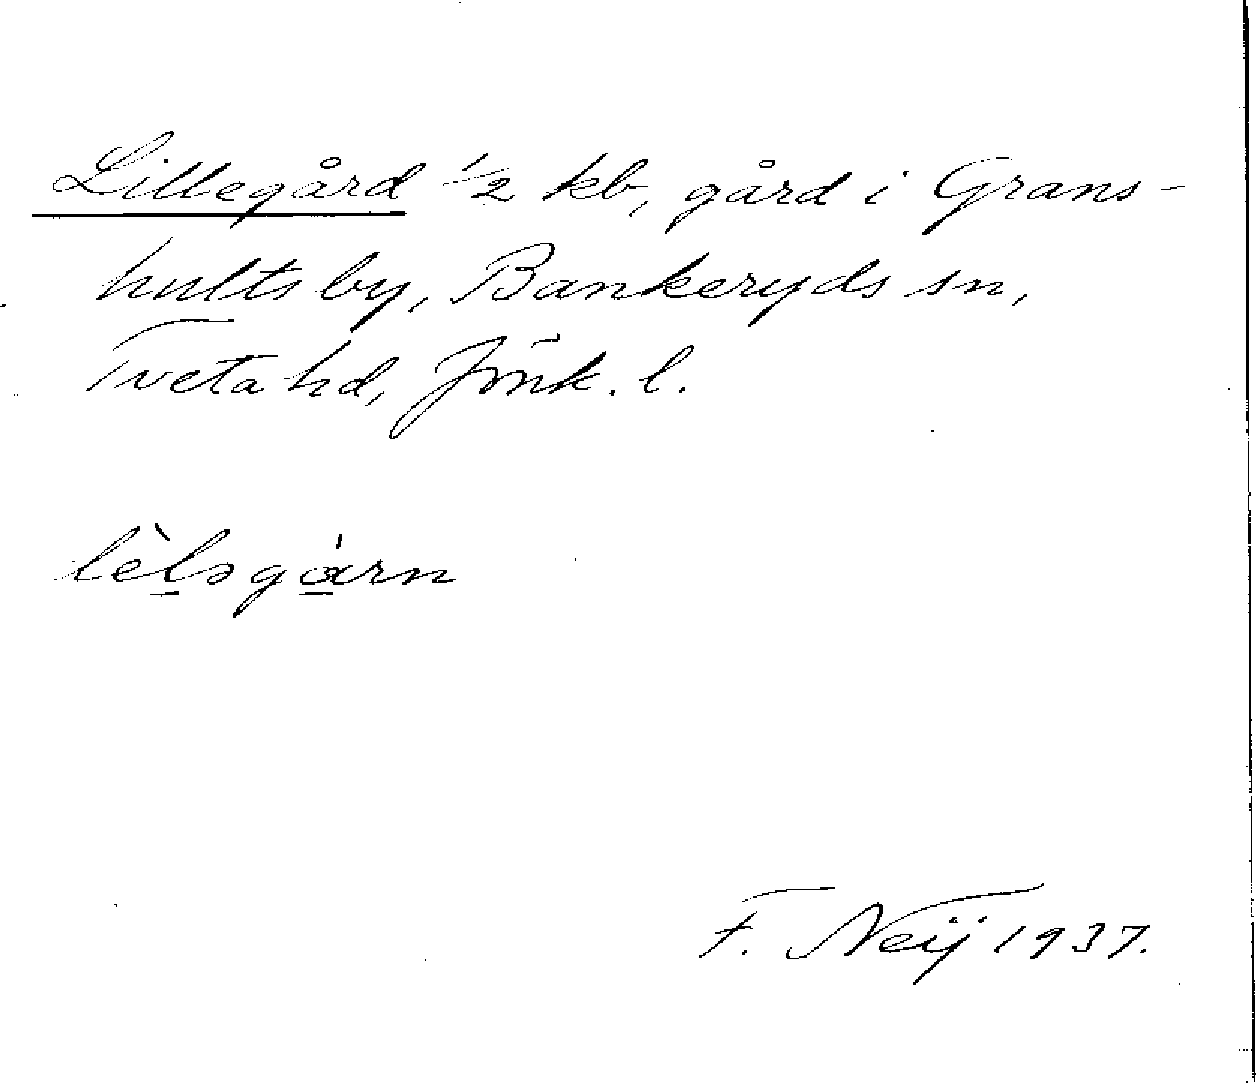 Lillegård 1/2 kb, gård i Grans-
hults by, Bankeryds sn,
Tveta hd, Jönk. l.
lèl̠əgɑ̠́rn
F. Neij 1937.